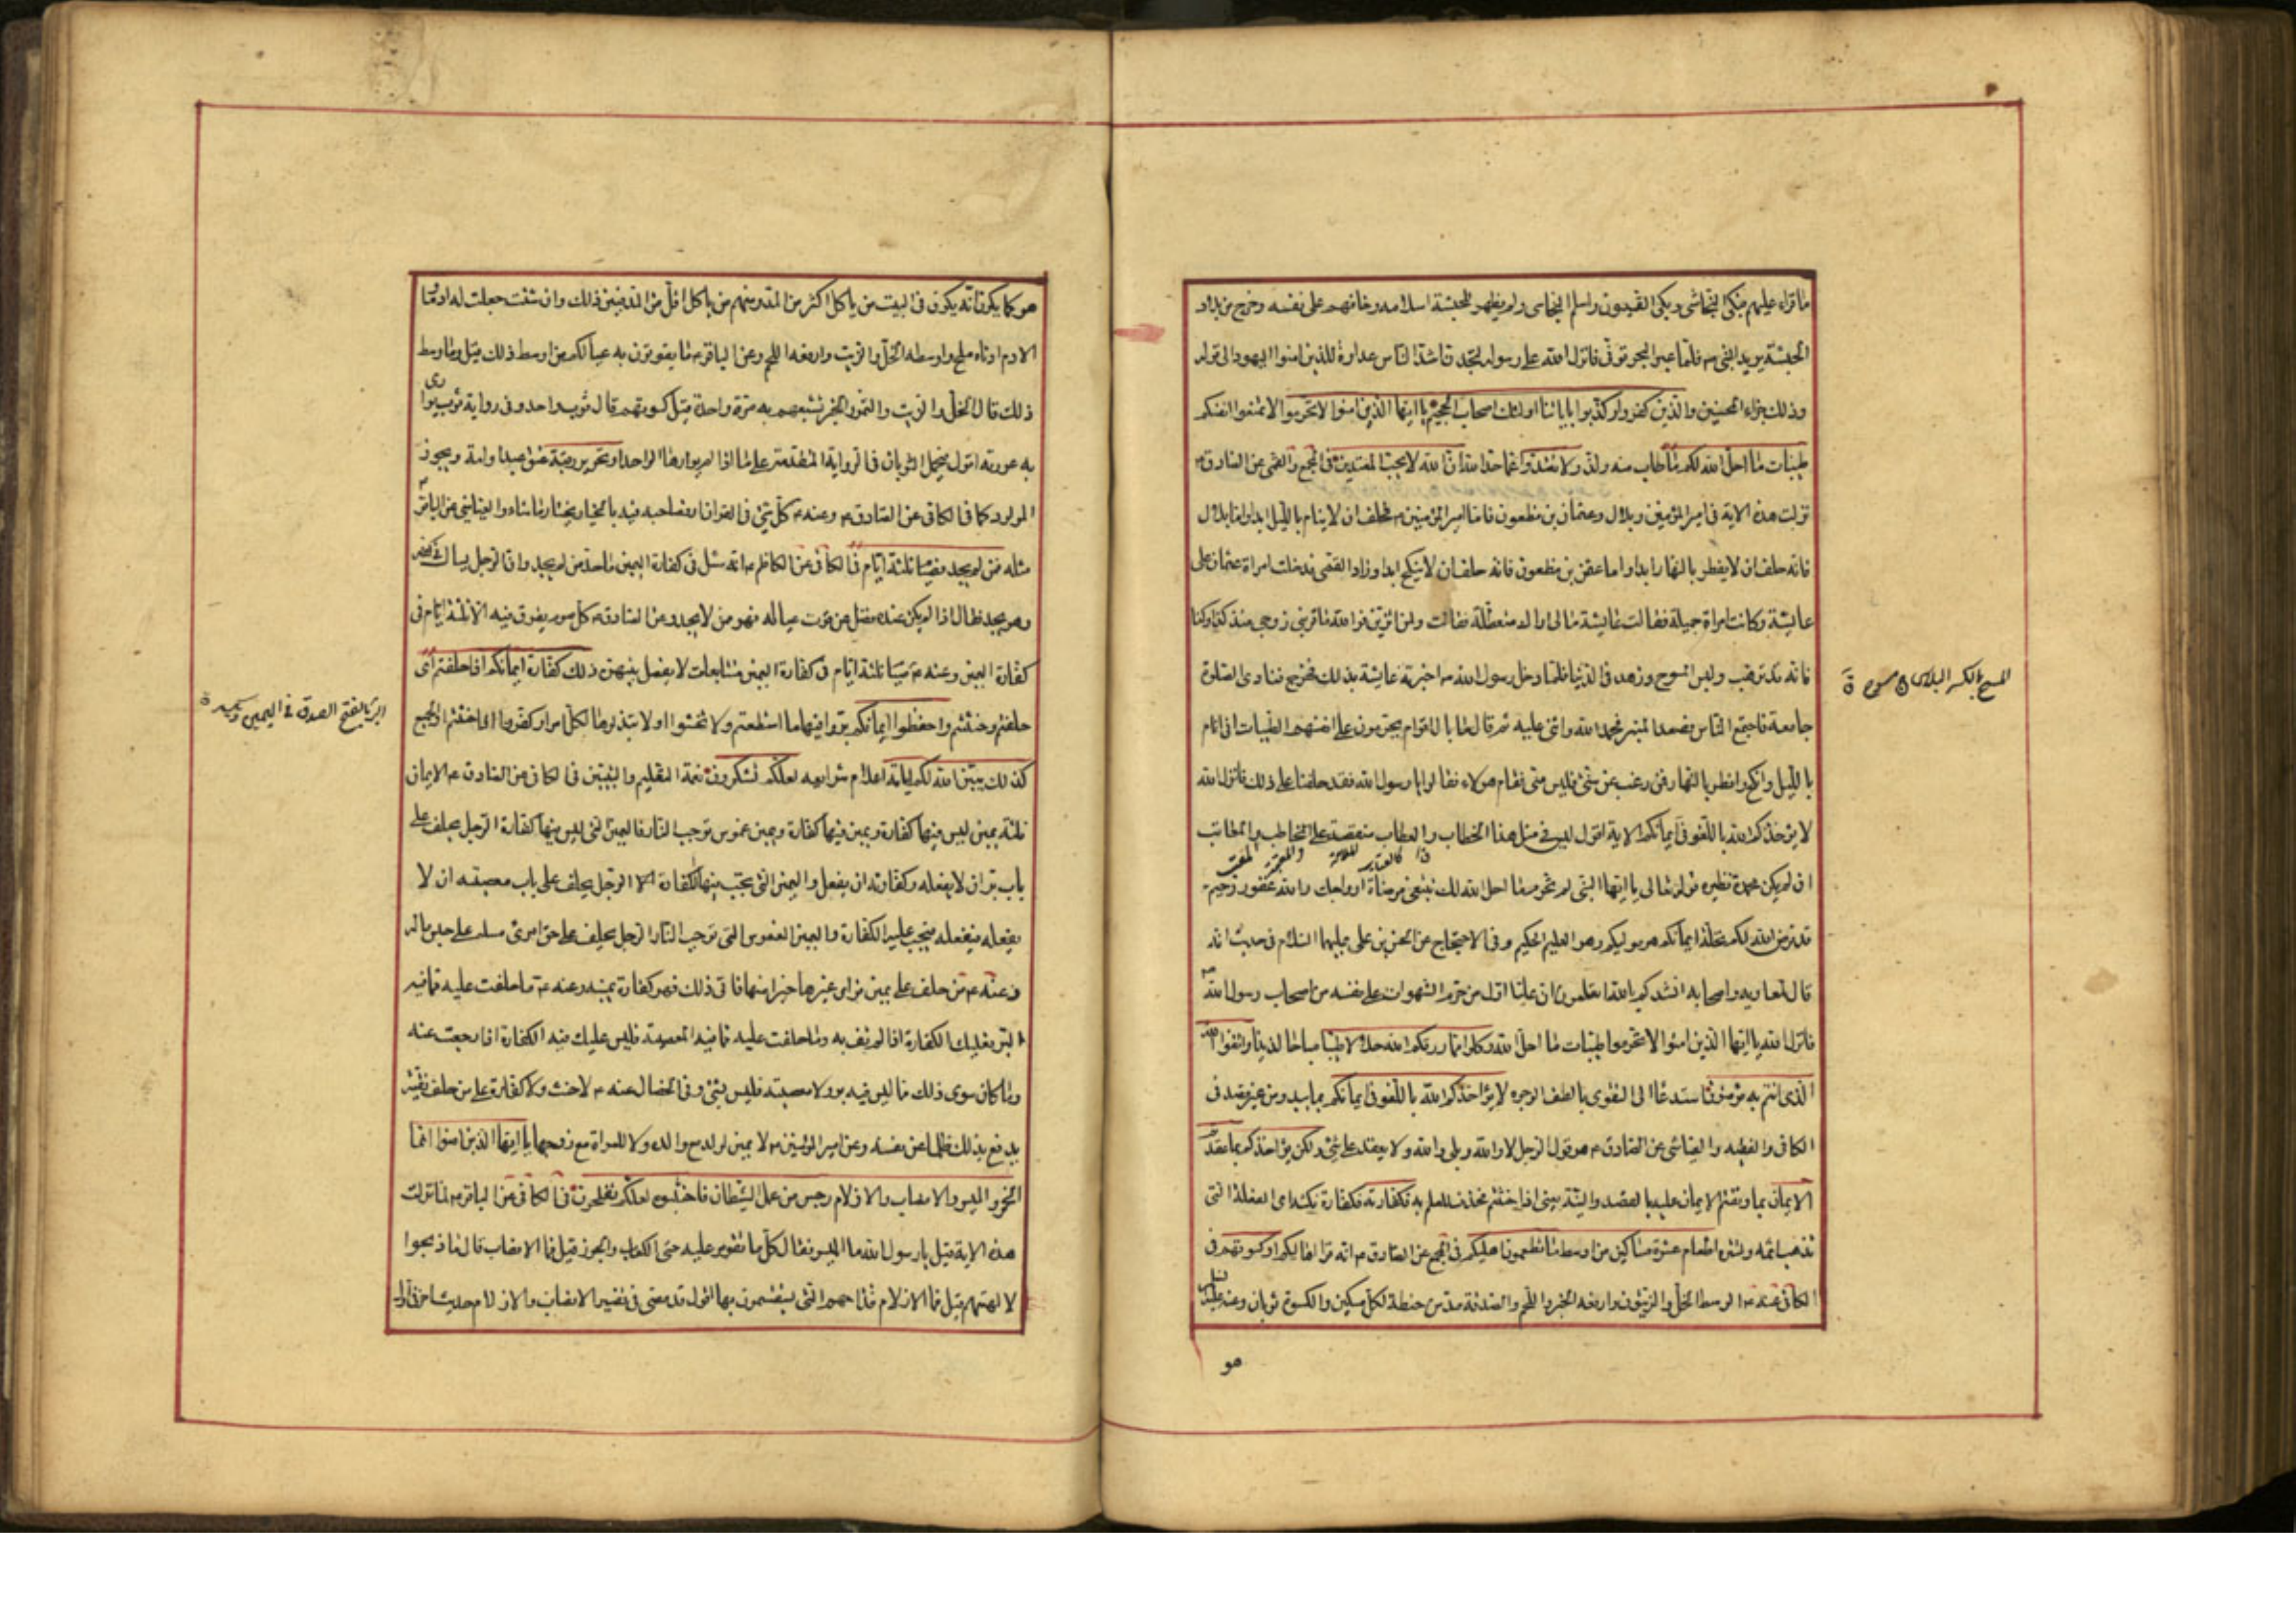 ما نزل عليهم فبكى النجاشى وبكى القسيسون واسلم النجاشى ولم يظهر للحبشة اسلامه وخافهم على نفسه وخرج من بلاد
الحبشة يريد النبى ص فلما عبر البحر توفى فانزل الله على رسوله لتجدن اشد الناس عداوة للذين امنوا اليهود الى قوله
وذلك جزاء المحسنين والذين كفروا وكذبوا باياتنا اولئك اصحاب الجحيم يا ايها الذين امنوا لا تحرموا لا تمنعوا انفسكم
طيبات ما احل الله لكم ما طاب منه ولذ ولا تعتدوا عما حد الله ان الله لا يحب المعتدين فى المجمع والقمى عن الصادق ع
نزلت هذه الاية فى امير المؤمنين وبلال وعثمان بن مظعون فاما امير المؤمنين ع فحلف ان لا ينام بالليل ابدا واما بلال
فانه حلف ان لا يفطر بالنهار ابدا واما عثمن بن مظعون فانه حلف ان لا ينكح ابدا وزاد القمى فدخلت امراة عثمان على
عايشة وكانت امراة جميلة فقالت عايشة مالى اراك متعطلة فقالت ولمن اتزين فوالله ما قربنى زوجى منذ كذا وكذا
فانه قد ترهب ولبس المسوح وزهد فى الدنيا فلما دخل رسول الله ص اخبرته عايشة بذلك فخرج فنادى الصلوة
جامعة فاجتمع الناس فصعد المنبر فحمد الله واثنى عليه ثم قال ما بال اقوام يحرمون على انفسهم الطيبات انى انام
بالليل وانكح وافطر بالنهار فمن رغب عن سنتى فليس منى فقام هؤلاء فقالوا يا رسول الله فقد حلفنا على ذلك فانزل الله
لا يؤاخذكم الله باللغو فى ايمانكم الاية اقول ليس فى مثل هذا الخطاب والعتاب منقصة على المخاطب والمعاتب
ان لم يكن محمدة نظيره قوله تعالى يا ايها النبى لم تحرم ما احل الله لك تبتغى مرضاة ازواجك والله غفور رحيم
قد فرض الله لكم تحلة ايمانكم هو موليكم وهو العليم الحكيم وفى الاحتجاج عن الحسن بن على عليهما السلام فى حديث انه
قال لمعاويه واصحابه انشدكم بالله اتعلمون ان عليا اول من حرم الشهوات على نفسه من اصحاب رسول الله ص
فانزل الله يا ايها الذين امنوا لا تحرموا طيبات ما احل الله وكلوا مما رزقكم الله حلالا طيبا مباحا لذيذا واتقوا الله
الذى انتم به مؤمنون استدعاء الى التقوى بالطف الوجوه لا يؤاخذكم الله باللغو فى ايمانكم بما يبدو من غير قصد فى
الكافى والفقيه والعياشى عن الصادق ع هو قول الرجل لا والله وبلى والله ولا يعقد على شئ ولكن يؤاخذكم بما عقدتم
الايمان بما وثقتم الايمان عليه بالقصد والنية يعنى اذا حنثتم فحذف للعلم به فكفارته فكفارة نكثه اى الفعلة التى
تذهب اثمه وتستره اطعام عشرة مساكين من اوسط ما تطعمون اهليكم فى المجمع عن الصادق ع انه قرا اهاليكم او كسوتهم فى
الكافى عنه ع الوسط الخل والزيتون وارفعه الخبز واللحم والصدقة مد من حنطة لكل مسكين والكسوة ثوبان وعنه عليه السلام
هو
المسح بالكسر البلاس ج مسوح ق
هو كما يكون انه يكون فى البيت من ياكل اكثر من المد ومنهم من ياكل اقل من المد فبين ذلك وان شئت جعلت له ادما و
الادم ادناه ملح واوسطه الخل والزيت وارفعه اللحم وعن الباقر ع ما يقوتون به عيالكم من اوسط ذلك قيل وما اوسط
ذلك قال الخل والزيت والتمر والخبز تشبعهم به مرة واحدة قيل كسوتهم قال ثوب واحد وفى رواية ثوب يوارى
به عورته اقول يحمل الثوبان فى الرواية المتقدمة على ما اذا لم يوارها الواحد او تحرير رقبة عتق عبد او امة ويجوز
المولود كما فى الكافى عن الصادق ع وعنه ع كل شئ فى القران او فصاحبه فيه بالخيار يختار ما شاء والعياشى عن الباقر ع
مثله فمن لم يجد فصيام ثلثة ايام فى الكافى عن الكاظم ع انه سئل فى كفارة اليمين ما حد من لم يجد وان الرجل يسال فى كفه
وهو يجد فقال اذا لم يكن عنده فضل عن قوت عياله فهو ممن لا يجد وعن الصادق ع كل صوم يفرق فيه الا ثلثة ايام فى
كفارة اليمين وعنه ع صيام ثلثة ايام فى كفارة اليمين متتابعات لا يفصل بينهن ذلك كفارة ايمانكم اذا حلفتم اى
حلفتم وحنثتم واحفظوا ايمانكم بروا فيها ما استطعتم ولا تحنثوا او لا تبذلوها لكل امر او كفروها اذا حنثتم او الجميع
كذلك يبين الله لكم اياته اعلام شرايعه لعلكم تشكرون نعمة التعليم والتبيين فى الكافى عن الصادق ع الايمان
ثلثة يمين ليس فيها كفارة ويمين فيها كفارة ويمين غموس توجب النار فاليمين التى ليس فيها كفارة الرجل يحلف على
باب بر ان لا يفعله وكفارته ان يفعل واليمين التى يجب فيها الكفارة الرجل يحلف على باب معصية ان لا
يفعله فيفعله فيجب عليه الكفارة واليمين الغموس التى توجب النار الرجل يحلف على حق امرئ مسلم على حبس ماله
وعنه ع من حلف على يمين فراى غيرها خيرا منها فاتى ذلك فهو كفارة يمينه وعنه ع ما حلفت عليه مما فيه
البر فعليك الكفارة اذا لم تف به وما حلفت عليه مما فيه المعصية فليس عليك فيه الكفارة اذا رجعت عنه
وما كان سوى ذلك مما ليس فيه بر ولا معصية فليس بشئ وفى الخصال عنه ع لا حنث ولا كفارة على من حلف تقية
يدفع بذلك ظلما عن نفسه وعن امير المؤمنين ع لا يمين لولد مع والده ولا للمراة مع زوجها يا ايها الذين امنوا انما
الخمر والميسر والانصاب والازلام رجس من عمل الشيطان فاجتنبوه لعلكم تفلحون فى الكافى عن الباقر ع لما نزلت
هذه الاية قيل يا رسول الله ما الميسر فقال كل ما تقومر عليه حتى الكعاب والجوز قيل فما الانصاب قال ما ذبحوا
لالهتهم قيل فما الازلام قال قداحهم التى يستقسمون بها اقول قد مضى فى تفسير الانصاب والازلام حديث اخر فى اول
البر بالفتح الصدق فى اليمين ويكسر ق